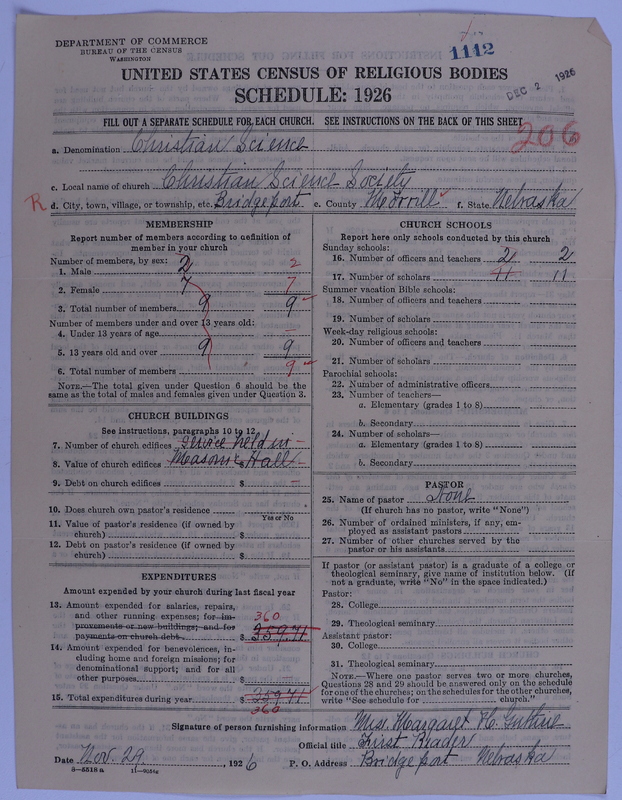 DEPARTMENT OF COMMERCE
BUREAU OF THE CENSUS
WASHINGTON
1112
DEC 2 1926
UNITED STATES CENSUS OF RELIGIOUS BODIES
SCHEDULE: 1926
FILL OUT A SEPARATE SCHEDULE FOR EACH CHURCH. SEE INSTRUCTIONS ON THE BACK OF THIS SHEET
206
a. Denomination Christian Science
c. Local name of church Christian Science Society
R d. City, town, village, or township, etc. Bridgeport e. County Morrill f. State Nebraska
MEMBERSHIP
Report number of members according to definition of
member in your church
Number of members, by sex:
1. Male 2 2
2. Female 7 7
3. Total number of members 9 9
Number of members under and over 13 years old:
4. Under 13 years of age –
5. 13 years old and over 9 9
6. Total number of members 9
NOTE.—The total given under Question 6 should be the
same as the total of males and females given under Question 3.
CHURCH BUILDINGS
See instructions, paragraphs 10 to 12
7. Number of church edifices Service held in –
8. Value of church edifices Masonic Hall $ –
9. Debt on church edifices $ –
10. Does church own pastor's residence
Yes or No
11. Value of pastor's residence (if owned by
church) $
12. Debt on pastor's residence (if owned by
church) $
EXPENDITURES
Amount expended by your church during last fiscal year
13. Amount expended for salaries, repairs,
and other running expenses; for im- 360
provements or new buildings; and for
payments on church debt $ 359.71
14. Amount expended for benevolences, in-
cluding home and foreign missions; for
denominational support; and for all
other purposes $
15. Total expenditures during year $ 359.71
360
CHURCH SCHOOLS
Report here only schools conducted by this church
Sunday schools:
16. Number of officers and teachers 2 2
17. Number of scholars 11 11
Summer vacation Bible schools:
18. Number of officers and teachers
19. Number of scholars
Week-day religious schools:
20. Number of officers and teachers
21. Number of scholars
Parochial schools:
22. Number of administrative officers
23. Number of teachers—
a. Elementary (grades 1 to 8)
b. Secondary
24. Number of scholars—
a. Elementary (grades 1 to 8)
b. Secondary
PASTOR
25. Name of pastor None
(If church has no pastor, write "None")
26. Number of ordained ministers, if any, em-
ployed as assistant pastors
27. Number of other churches served by the
pastor or his assistants
If pastor (or assistant pastor) is a graduate of a college or
theological seminary, give name of institution below. (If
not a graduate, write "No" in the space indicated.)
Pastor:
28. College
29. Theological seminary
Assistant pastor:
30. College
31. Theological seminary
NOTE.—Where one pastor serves two or more churches,
Questions 28 and 29 should be answered only on the schedule
for one of the churches; on the schedules for the other churches,
write "See schedule for church."
Signature of person furnishing information Miss. Margaret H. Guthrie
Official title First Reader
Date Nov. 29, 1926 P. O. Address Bridgeport Nebraska
8—5518 a 11—9054g